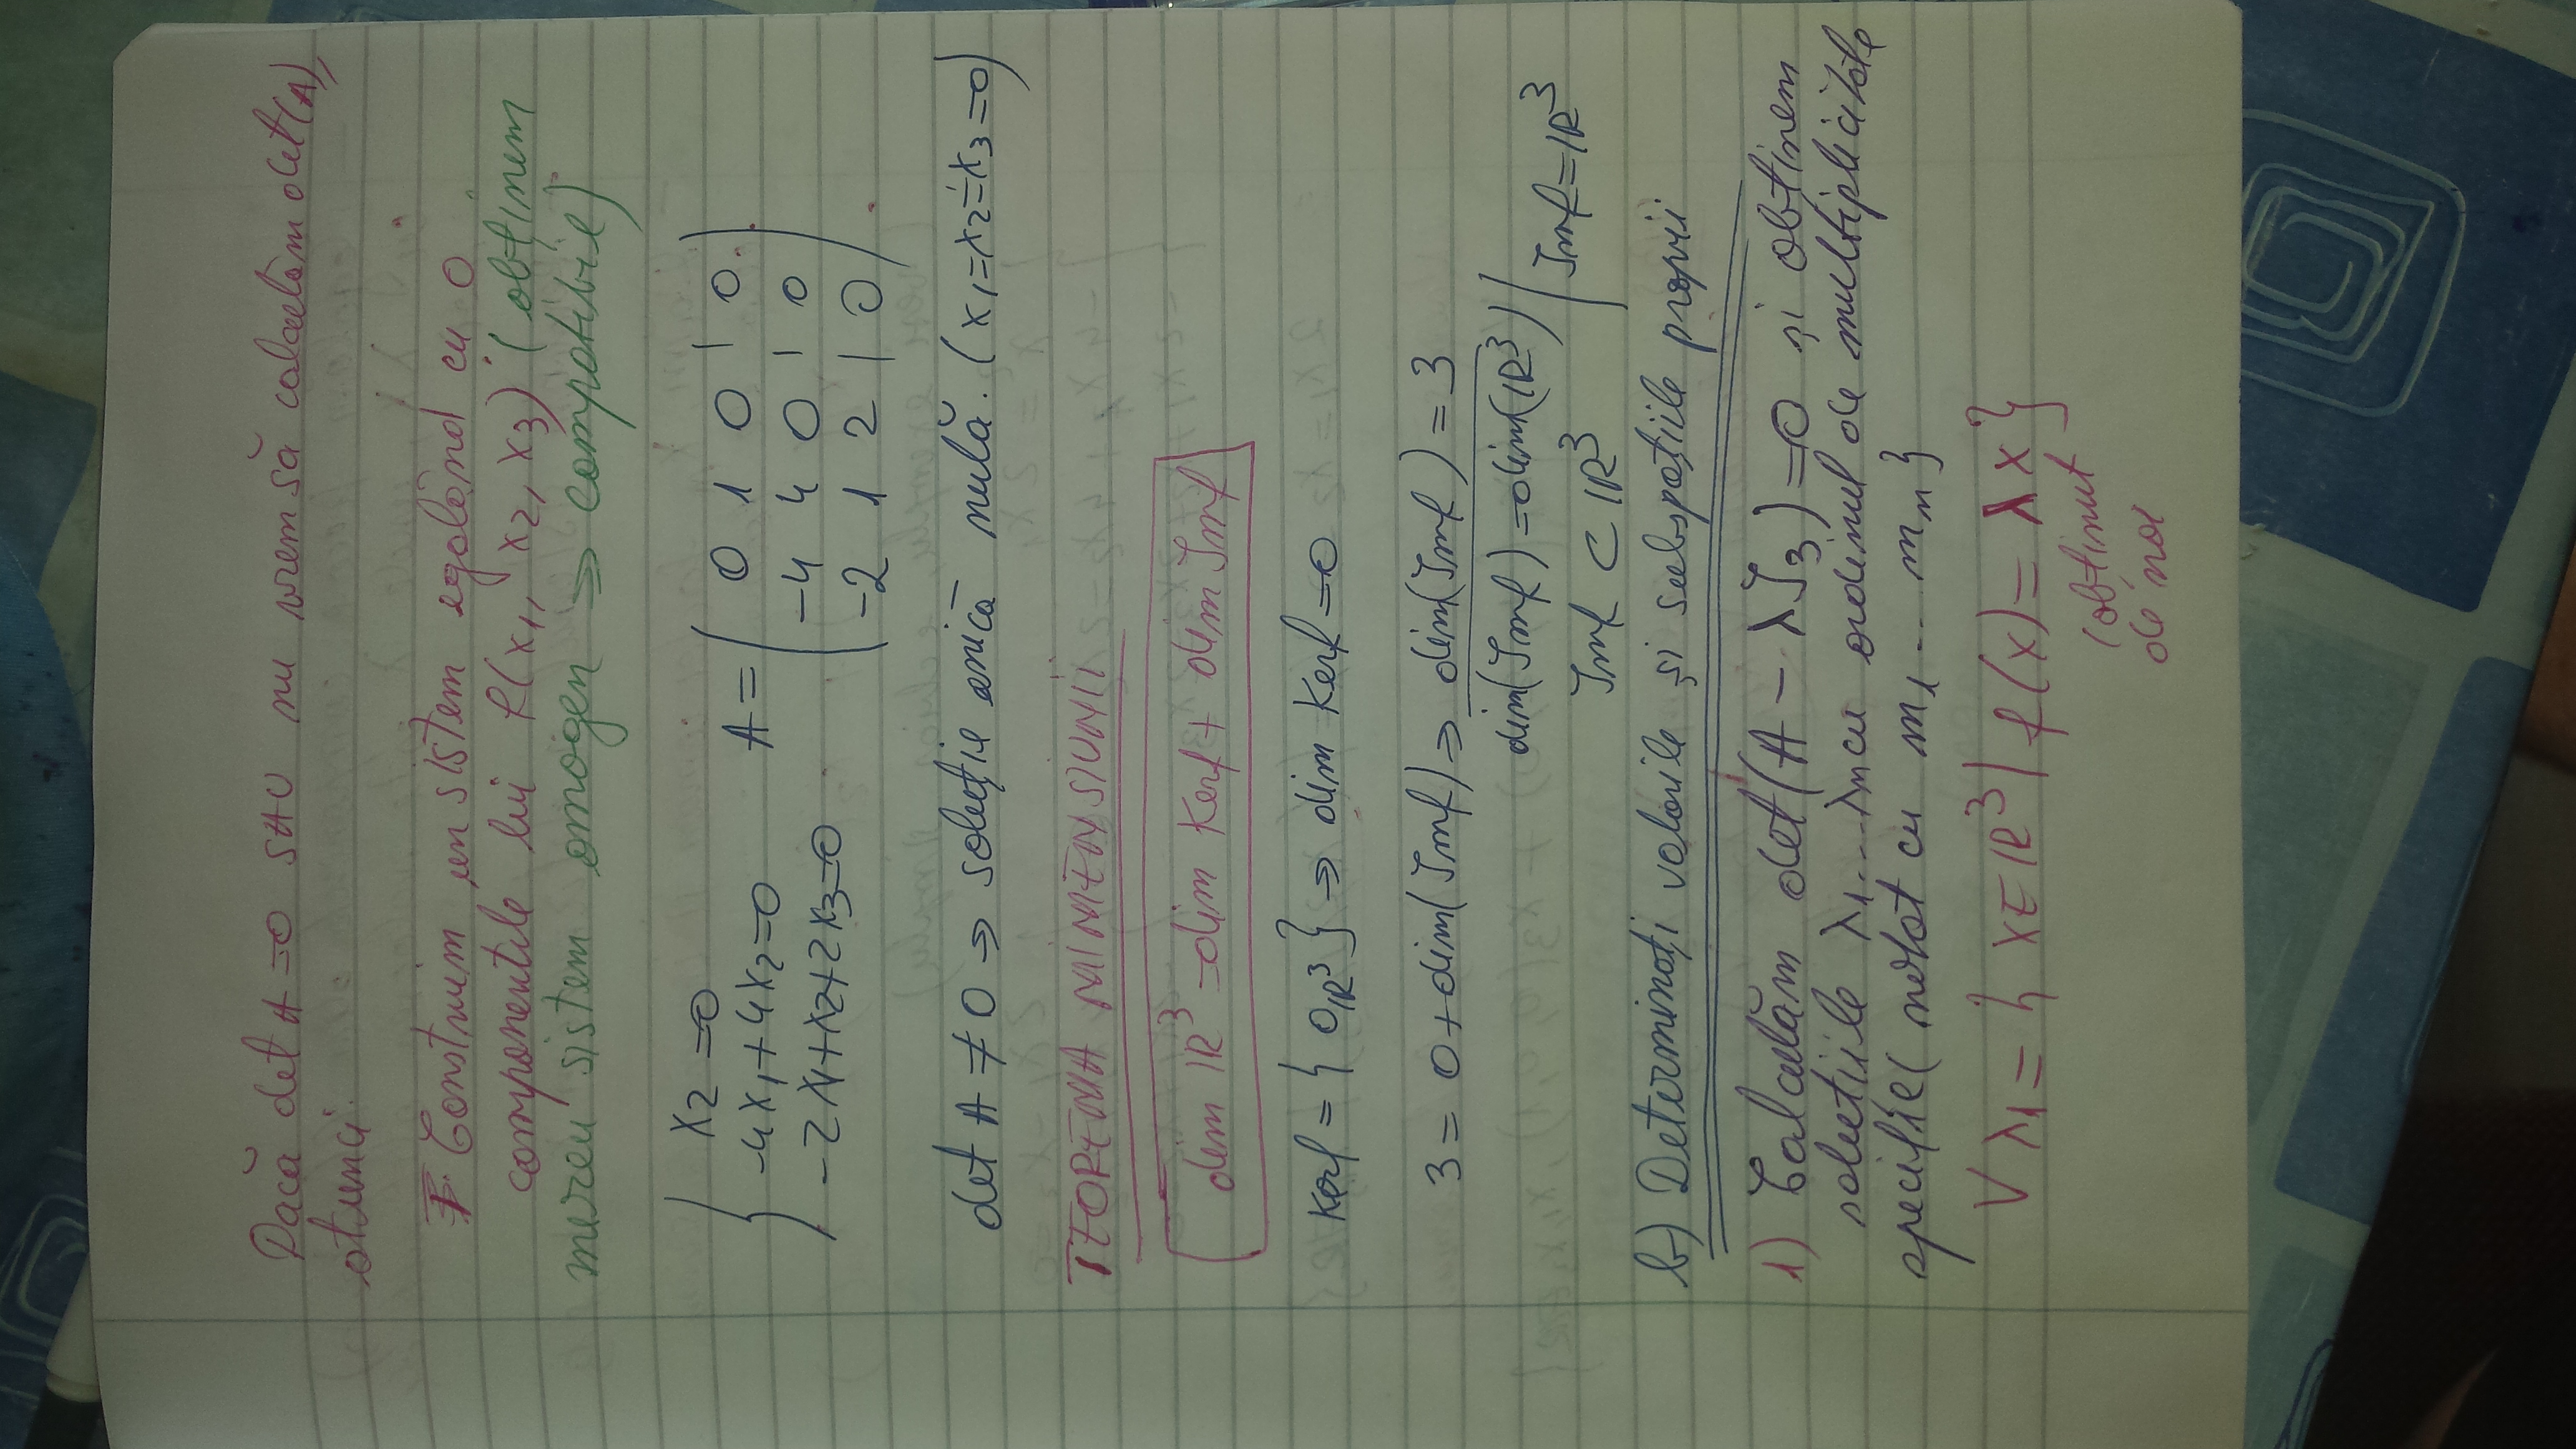 Dacă det A = 0 SAU nu vrem să calculăm det(A),
atunci:
Construim un sistem egalând cu 0
componentele lui f(x₁, x₂, x₃) (obținem
mereu sistem omogen ⇒ compatibil)
{ x₂ = 0
-4x₁ + 4x₂ = 0
-2x₁ + x₂ + 2x₃ = 0
A = ( 0 1 0 | 0
-4 4 0 | 0
-2 1 2 | 0 )
det A ≠ 0 ⇒ soluție unică nulă. (x₁ = x₂ = x₃ = 0)
TEOREMA DIMENSIUNII
dim ℝ³ = dim Kerf + dim Imf
Kerf = { 0ℝ³ } ⇒ dim Kerf = 0
3 = 0 + dim(Imf) ⇒ dim(Imf) = 3
dim(Imf) = dim(ℝ³) | Imf = ℝ³
Imf ⊂ ℝ³
b) Determinați valorile și subspațiile proprii
1) Calculăm det(A - λI₃) = 0 și obținem
soluțiile λ₁ ... λₙ cu ordinul de multiplicitate
specific( notat cu m₁ ... mₙ}
Vλ₁ = { x ∈ ℝ³ | f(x) = λx }
(obținut
de noi